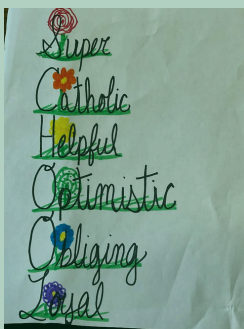 Super
Catholic
Helpful
Optimistic
Obliging
Loyal